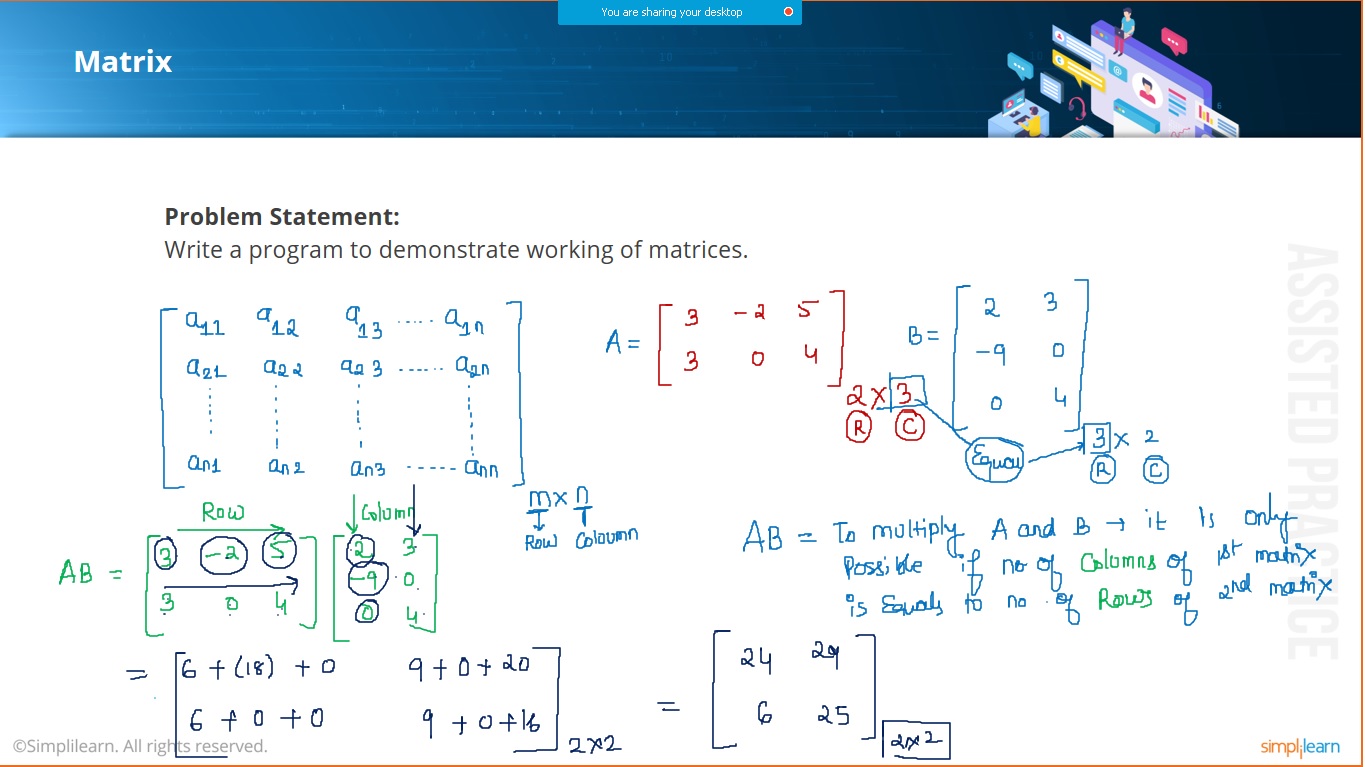 You are sharing your desktop
Matrix
Problem Statement:
Write a program to demonstrate working of matrices.
a11 a12 a13 ..... a1n
a21 a22 a23 ...... a2n
an1 an2 an3 ...... ann
m x n
Row Coloumn
A = 3 -2 5
3 0 4
2 x 3
R C
B = 2 3
-9 0
0 4
3 x 2
R C
Equal
Row Column
AB = 3 -2 5 2 3
-9 0
3 0 4 0 4
AB = To multiply A and B → it Is only
Possible if no of Columns of 1st matrix
is Equals to no of Rows of 2nd matrix
= 6 + (18) + 0 9 + 0 + 20
6 + 0 + 0 9 + 0 + 16
2x2
= 24 29
6 25
2x2
ASSISTED PRACTICE
©Simplilearn. All rights reserved.
simplilearn